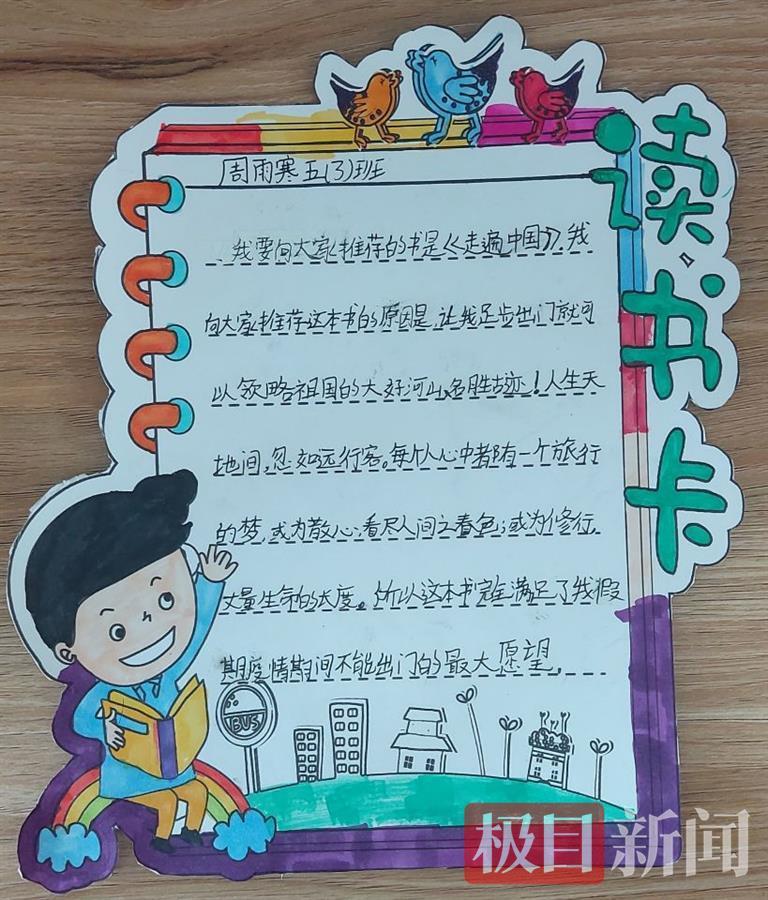 读书卡
周雨寒五(3)班
我要向大家推荐的书是《走遍中国》,我
向大家推荐这本书的原因是,让我足步出门就可
以领略祖国的大好河山,名胜古迹!人生天
地间,忽如远行客。每个人心中都有一个旅行
的梦,或为散心,看尽人间之春色;或为修行,
丈量生命的长度。所以这本书完全满足了我假
期疫情期间不能出门的最大愿望。
BUS
极目新闻